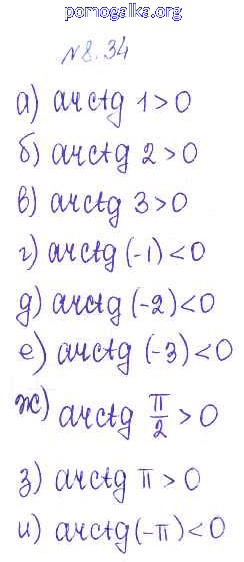 pomogalka.org
№8.34
а) arctg 1 > 0
б) arctg 2 > 0
в) arctg 3 > 0
г) arctg (-1) < 0
д) arctg (-2) < 0
е) arctg (-3) < 0
ж) arctg π/2 > 0
з) arctg π > 0
и) arctg (-π) < 0